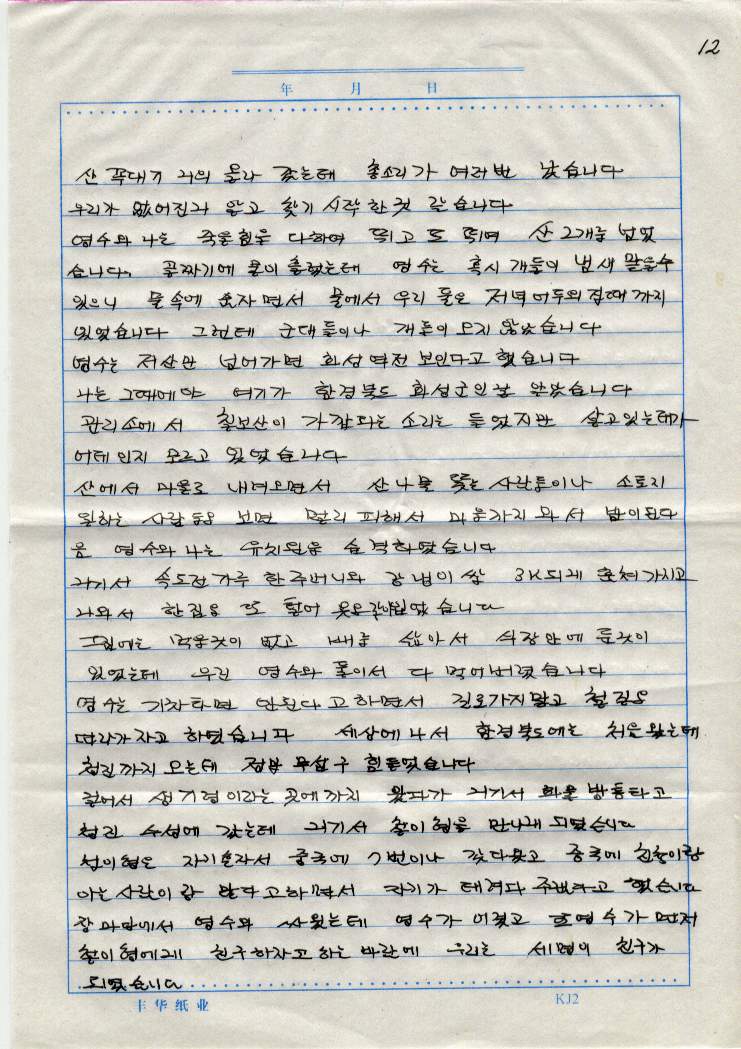 12
年 月 日
산 꼭대기 거의 올라 갔는데 총소리가 여러번 났습니다
우리가 없어진거 알고 찾기 시작한것 같습니다
영수와 나는 죽을힘을 다하여 뛰고 또 뛰여 산 2개를 넘었
습니다. 골짜기에 물이 흘렀는데 영수는 혹시 개들이 냄새 맡을수
있으니 물속에 숨자면서 물에서 우리 둘은 저녁어두워질때까지
있었습니다 그런데 군대들이나 개들이 오지 않았습니다
영수는 저산만 넘어가면 화성역전 보인다고 했습니다
나는 그때에야 여기가 함경북도 화성군인줄 알았습니다
관리소에서 칠보산이 가깝다는 소리는 들었지만 살고있는데가
어데인지 모르고 있었습니다
산에서 마을로 내려오면서 산나물 뜯는 사람들이나 소토지
하는 사람들을 보면 멀리 피해서 마을까지 와서 밤이된다
음 영수와 나는 유치원을 습격하였습니다
거기서 속도전가루 한주머니와 강냉이쌀 3K되게 훔쳐가지고
나와서 한집을 또 털어 옷을 갈아입었습니다
그집에는 먹을것이 없고 배추 삶아서 식장안에 둔것이
있었는데 우린 영수와 둘이서 다 먹어버렸습니다
영수는 기차타면 안된다고 하면서 길로가지말고 철길을
따라가자고 하였습니다 세상에 나서 함경북도에는 처음 왔는데
청진까지 오는데 정말 무섭구 힘들었습니다
걸어서 생기령이라는 곳에까지 왔다가 거기서 화물방통타고
청진 수성에 갔는데 거기서 철이형을 만나게 되였습니다
철이형은 자기혼자서 중국에 7번이나 갔다왔고 중국에 친척이랑
아는사람이랑 많다고하면서 자기가 데려다 주겠다고 했습니다
장마당에서 영수와 싸웠는데 영수가 이겼고 또 영수가 먼저
철이형에게 친구하자고 하는 바람에 우리는 세명이 친구가
되였습니다
丰华纸业 KJ2